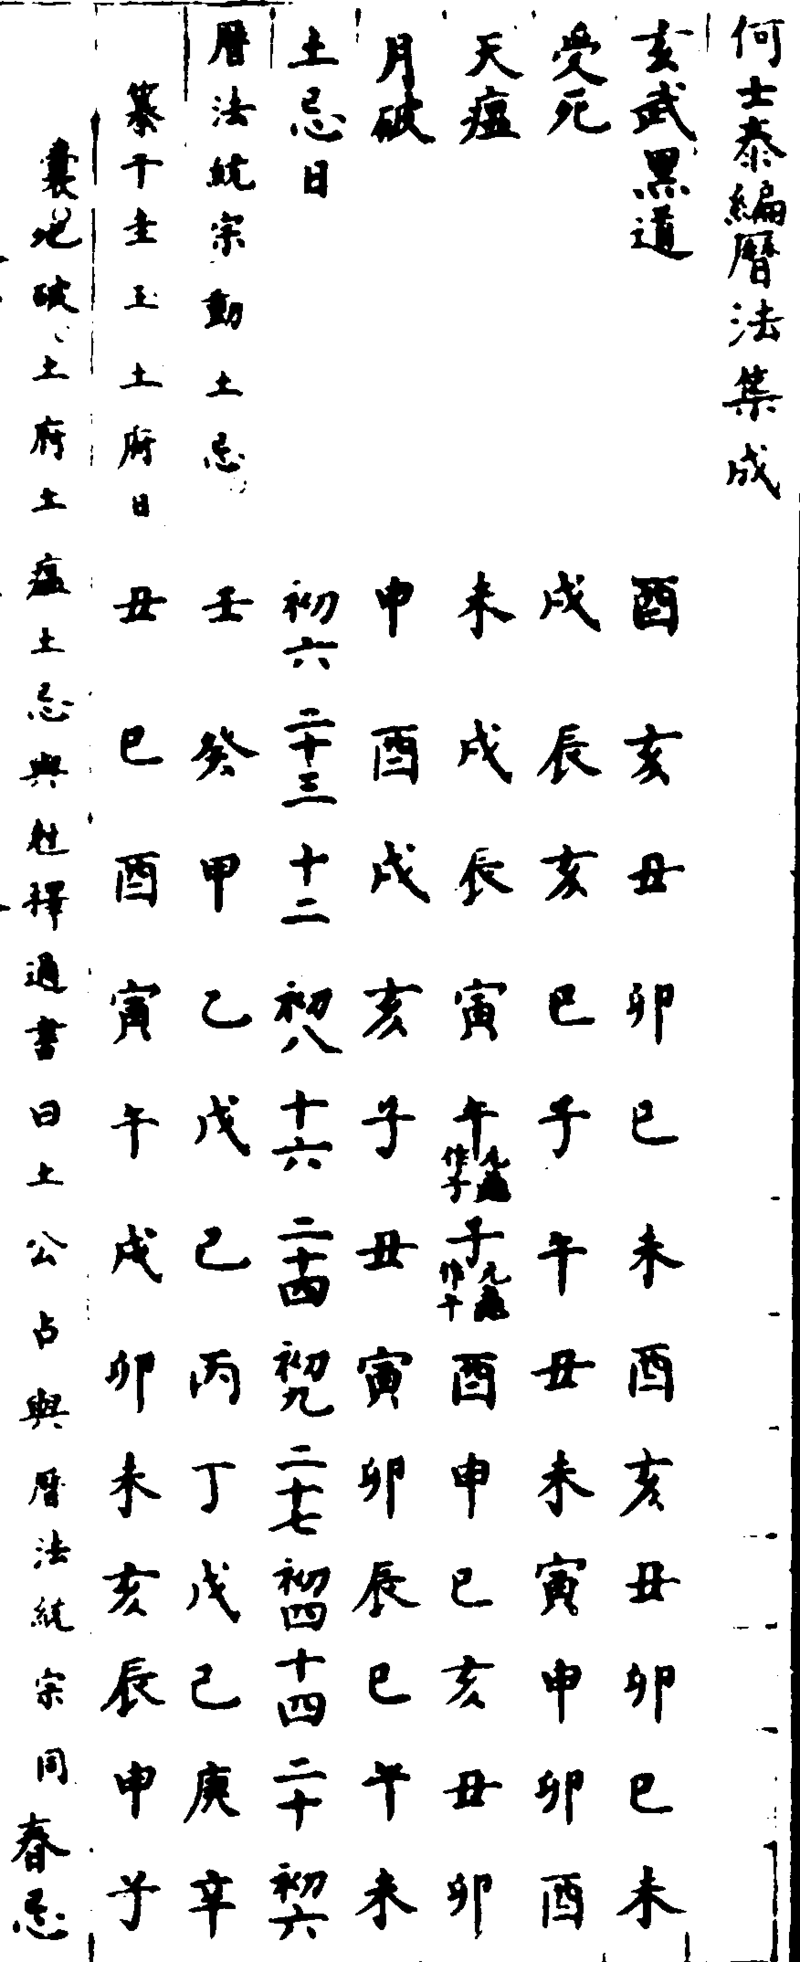 何士泰編曆法集成
玄武黑道 酉 亥 丑 卯 巳 未 酉 亥 丑 卯 巳 未
受死 戌 辰 亥 巳 子 午 丑 未 寅 申 卯 酉
天瘟 未 戌 辰 寅 午元龜作子 子元龜作午 酉 申 巳 亥 丑 卯
月破 申 酉 戌 亥 子 丑 寅 卯 辰 巳 午 未
土忌日 初六 二十三 十二 初八 十六 二十四 初九 二十七 初四 十四 二十 初六
曆法統宗動土忌 壬 癸 甲 乙 戊 己 丙 丁 戊 己 庚 辛
纂干圭玉土府日 丑 巳 酉 寅 午 戌 卯 未 亥 辰 申 子
囊地破土府土瘟土忌與姓擇通書曰土公占與曆法統宗同春忌